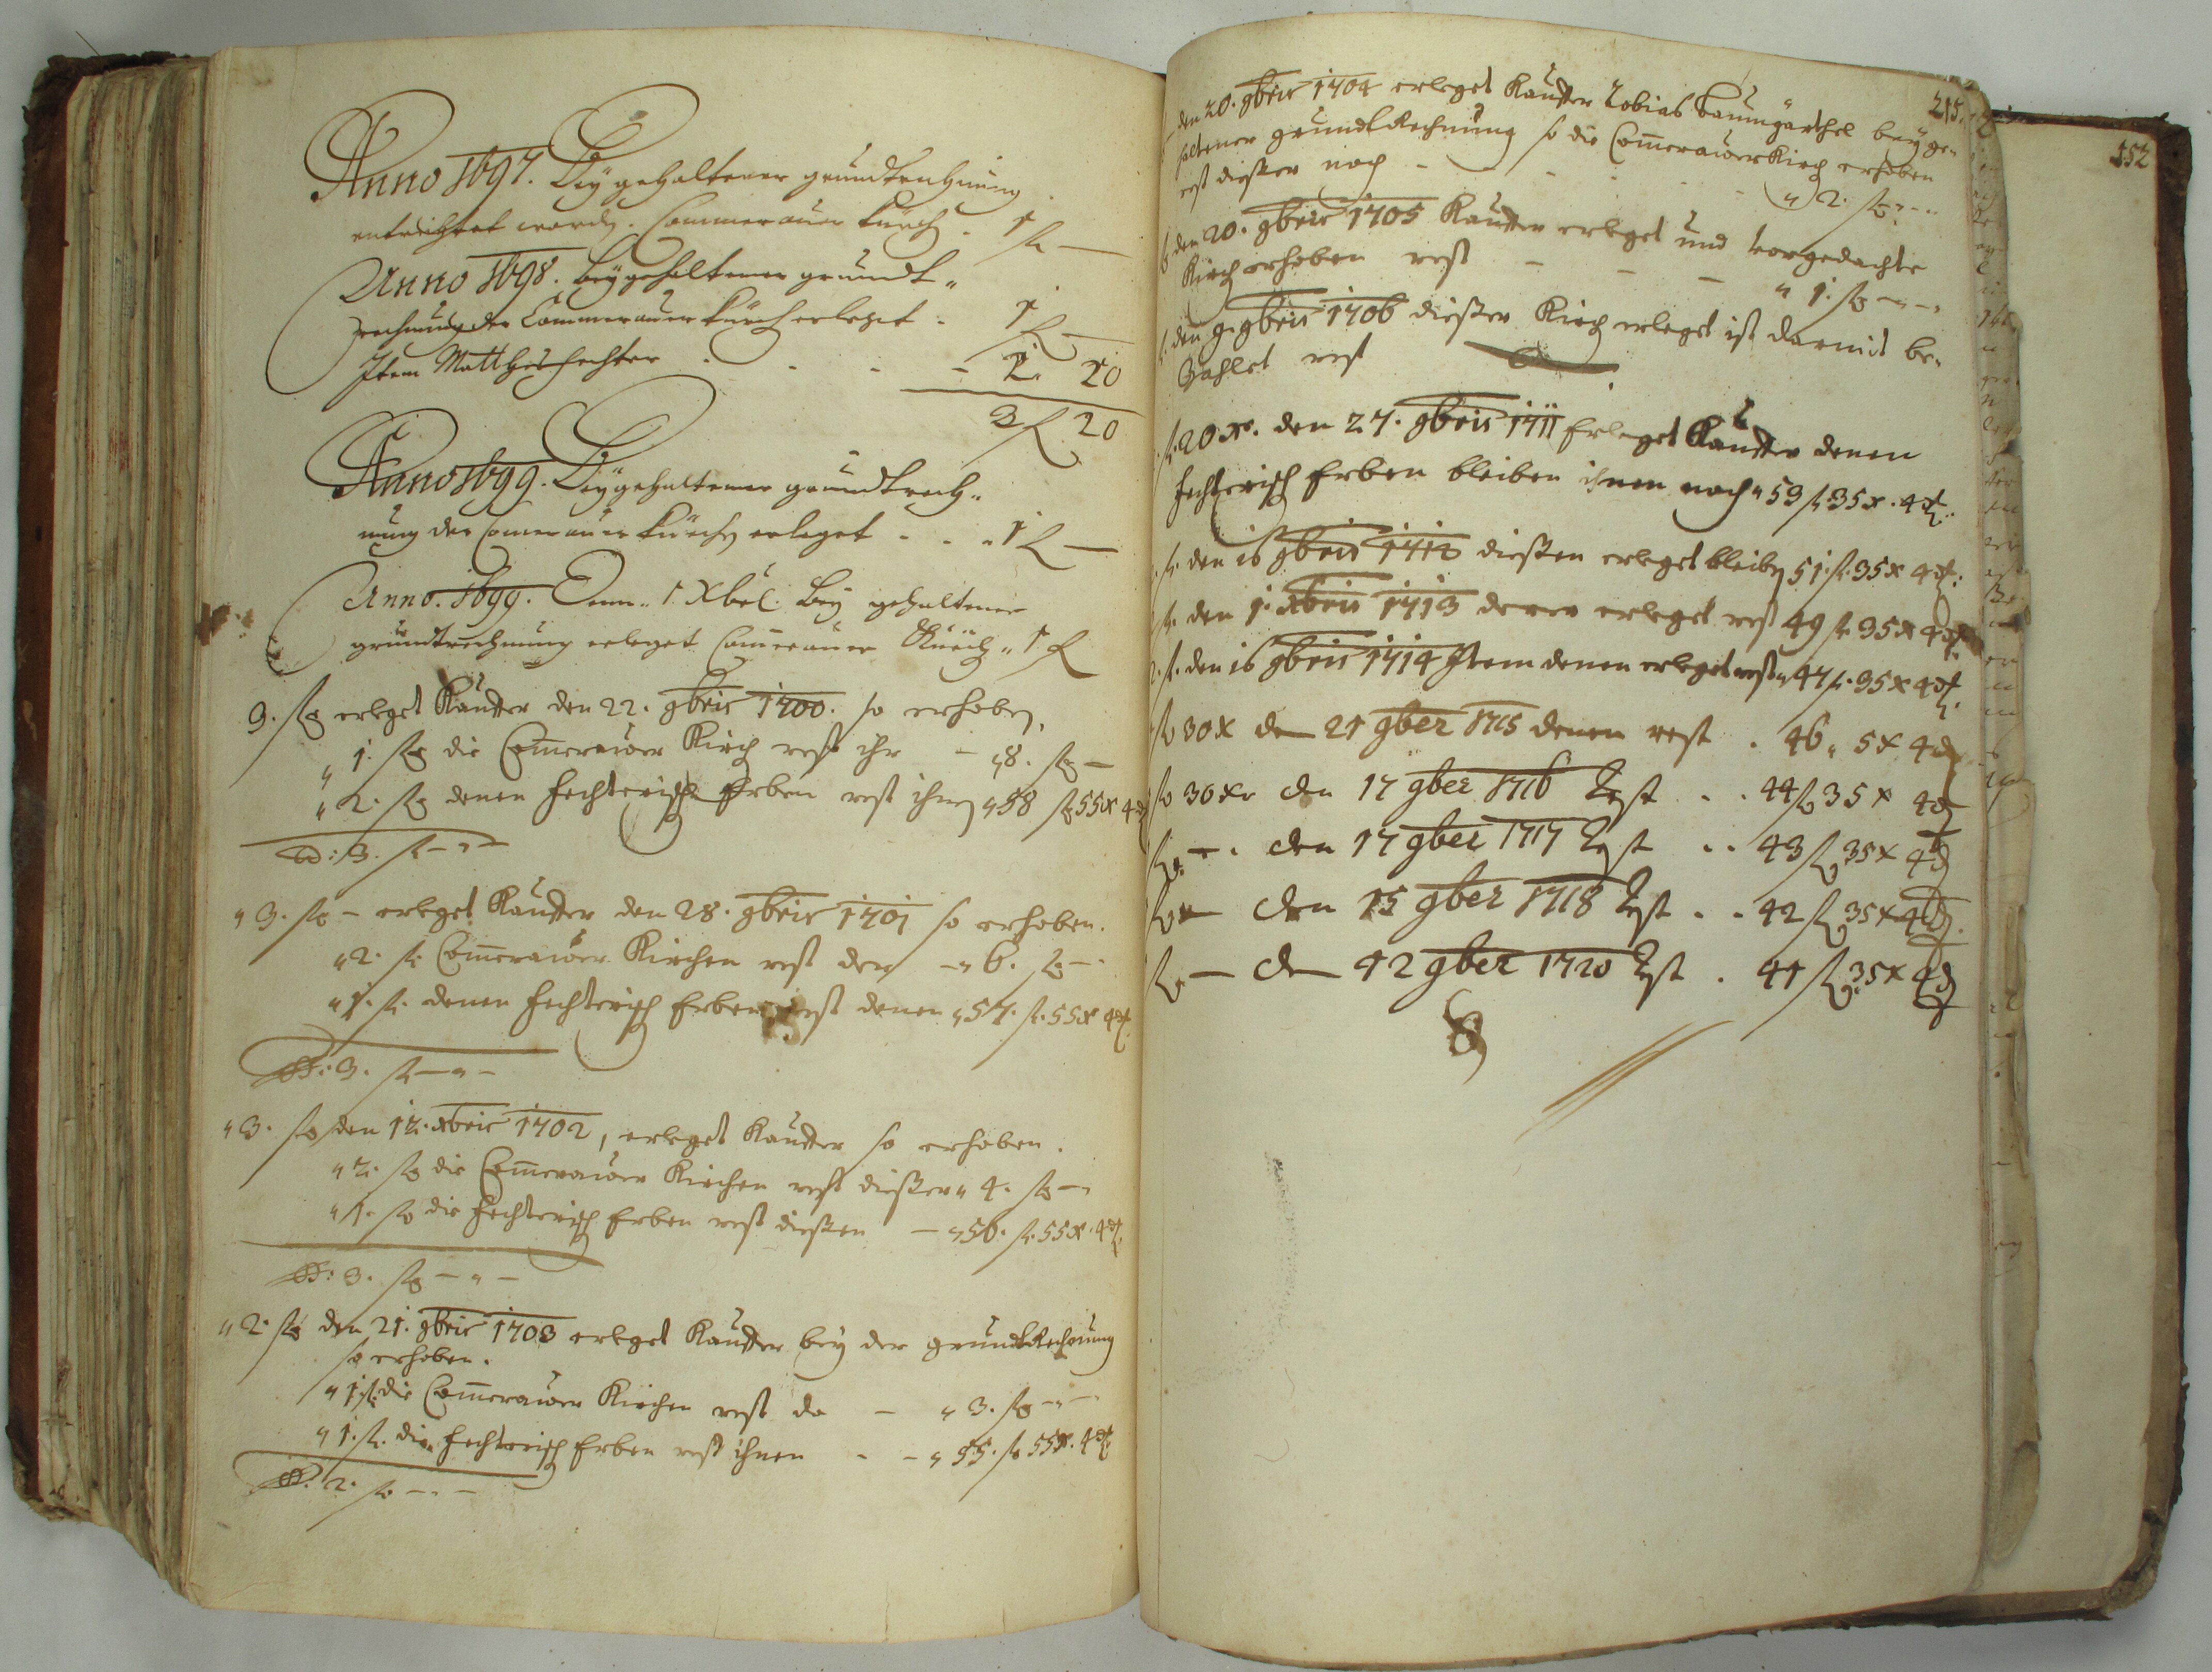 Anno 1697. Beÿ gehaltener grundtrechnung
entrichtet wordn. Commerauer Kürch. 1 ß —
Anno 1698. beÿ gehaltener grundt„
rechnung der Commerauer Kürch erleget . 1 ß —
Item Matthes Fechter . . . - 2. 20
3 ß 20
Anno 1699. Beÿ gehaltener grundtrech„
nung der Comerauer Kürchen erleget . . „ 1 ß —
Anno. 1699. Denn „ 1. Xbeš. beÿ gehaltener
grundtrechnung erleget Comerauer Kürch „ 1 ß
3. ßo erleget Kauffer den 22. 9bris 1700. so erhoben,
„ 1. ßo die Comerawer Kirch rest ihr — „ 8. ßo —
„ 2. ßo denen Fechterisch Erben rest ihnen „ 58 ßo 55x 4₰
3. ß — „ —
„ 3. ßo — erleget Kauffer den 28. 9bris 1701 so erhoben.
„ 2. ß. Comerawer Kirchen rest der — „ 6. ßo —
„ 1. ß. denen Fechterisch Erben rest denen „ 57. ß. 55x 4₰.
3. ß — „ —
„ 3. ßo den 12. xbris 1702, erleget Kauffer so erhoben.
„ 2. ßo die Comerawer Kirchen rest dießer „ 4. ßo —
„ 1. ßo die Fechterisch Erben rest dießen — „ 56. ß. 55x. 4₰.
3. ßo — „ —
„ 2. ßo den 21. 9bris 1703 erleget Kauffer beÿ der grundtRechnung
so erhoben.
„ 1. ß. die Comerawer Kirchen rest da — „ 3. ßo — „ —
„ 1. ß. die Fechterisch Erben rest ihnen - - „ 55. ßo 55x. 4₰.
2. ßo — „ —
215.
152
den 20. 9bris 1704 erleget Kauffer Tobias Baumgärthel beÿ ge„
haltener grundtRechnung so die Comerawer Kirch erhoben
rest dießer noch - - - - - „ 2. ßo „ —
den 20. 9bris 1705 Kauffer erleget und vorgedachte
Kirch erhoben rest — — — „ 1. ßo — „ —
den 9. 9bris 1706 dießer Kirch erleget ist darmit be„
zahlet rest
ß. 20 x. den 27. 9bris 1711 Erleget Kauffer denen
Fechterisch Erben bleiben ihnen noch „ 53 ß. 35x. 4₰.
ß. den 16 9bris 1712 dießen erleget bleiben 51. ß. 35x 4₰.
ß. den 1. xbris 1713 derer erleget rest 49 ß. 35x 4₰.
ß. den 16 9bris 1714 Item denen erleget rest „ 47 ß. 35x 4₰.
ßo 30x den 21 9ber 1715 denen rest . 46 „ 5x 4₰
ßo 30xr den 17 9ber 1716 Rest . . 44 ßo 35x 4₰
ßo — . den 17 9ber 1717 Rest . . 43 ßo 35x 4₰
ßo — den 15 9ber 1718 Rest . . 42 ßo 35x 4₰.
ßo — den 12 9ber 1720 Rest . 41 ßo 35x 4₰